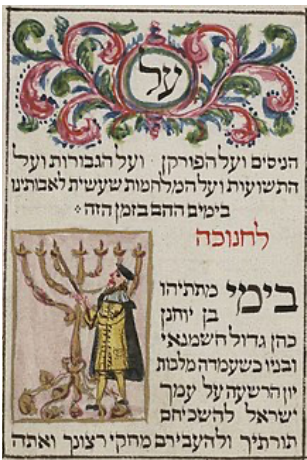 על
הניסים ועל הפורקן ועל הגבורות ועל
התשועות ועל המלחמות שעשית לאבותינו
בימים ההם בזמן הזה׃
לחנוכה
בימי מתתיהו
בן יוחנן
כהן גדול חשמנאי
ובניו כשעמדה מלכות
יון הרשעה על עמך
ישראל להשכיחם
תורתיך ולהעבירם מחקי רצונך ואתה